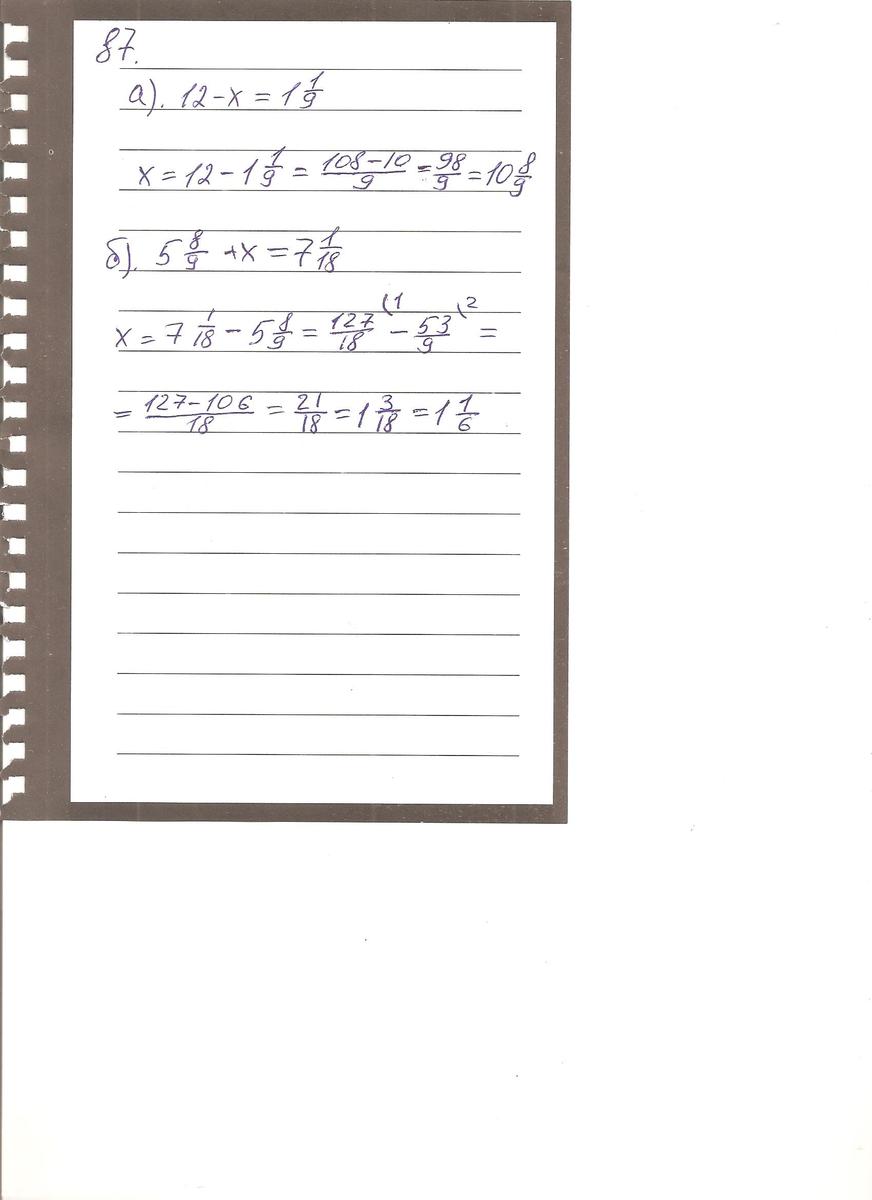 87.
а). 12 - x = 1 1/9
x = 12 - 1 1/9 = (108 - 10)/9 = 98/9 = 10 8/9
б). 5 8/9 + x = 7 1/18
x = 7 1/18 - 5 8/9 = 127/18 (1 - 53/9 \2 =
= (127 - 106)/18 = 21/18 = 1 3/18 = 1 1/6